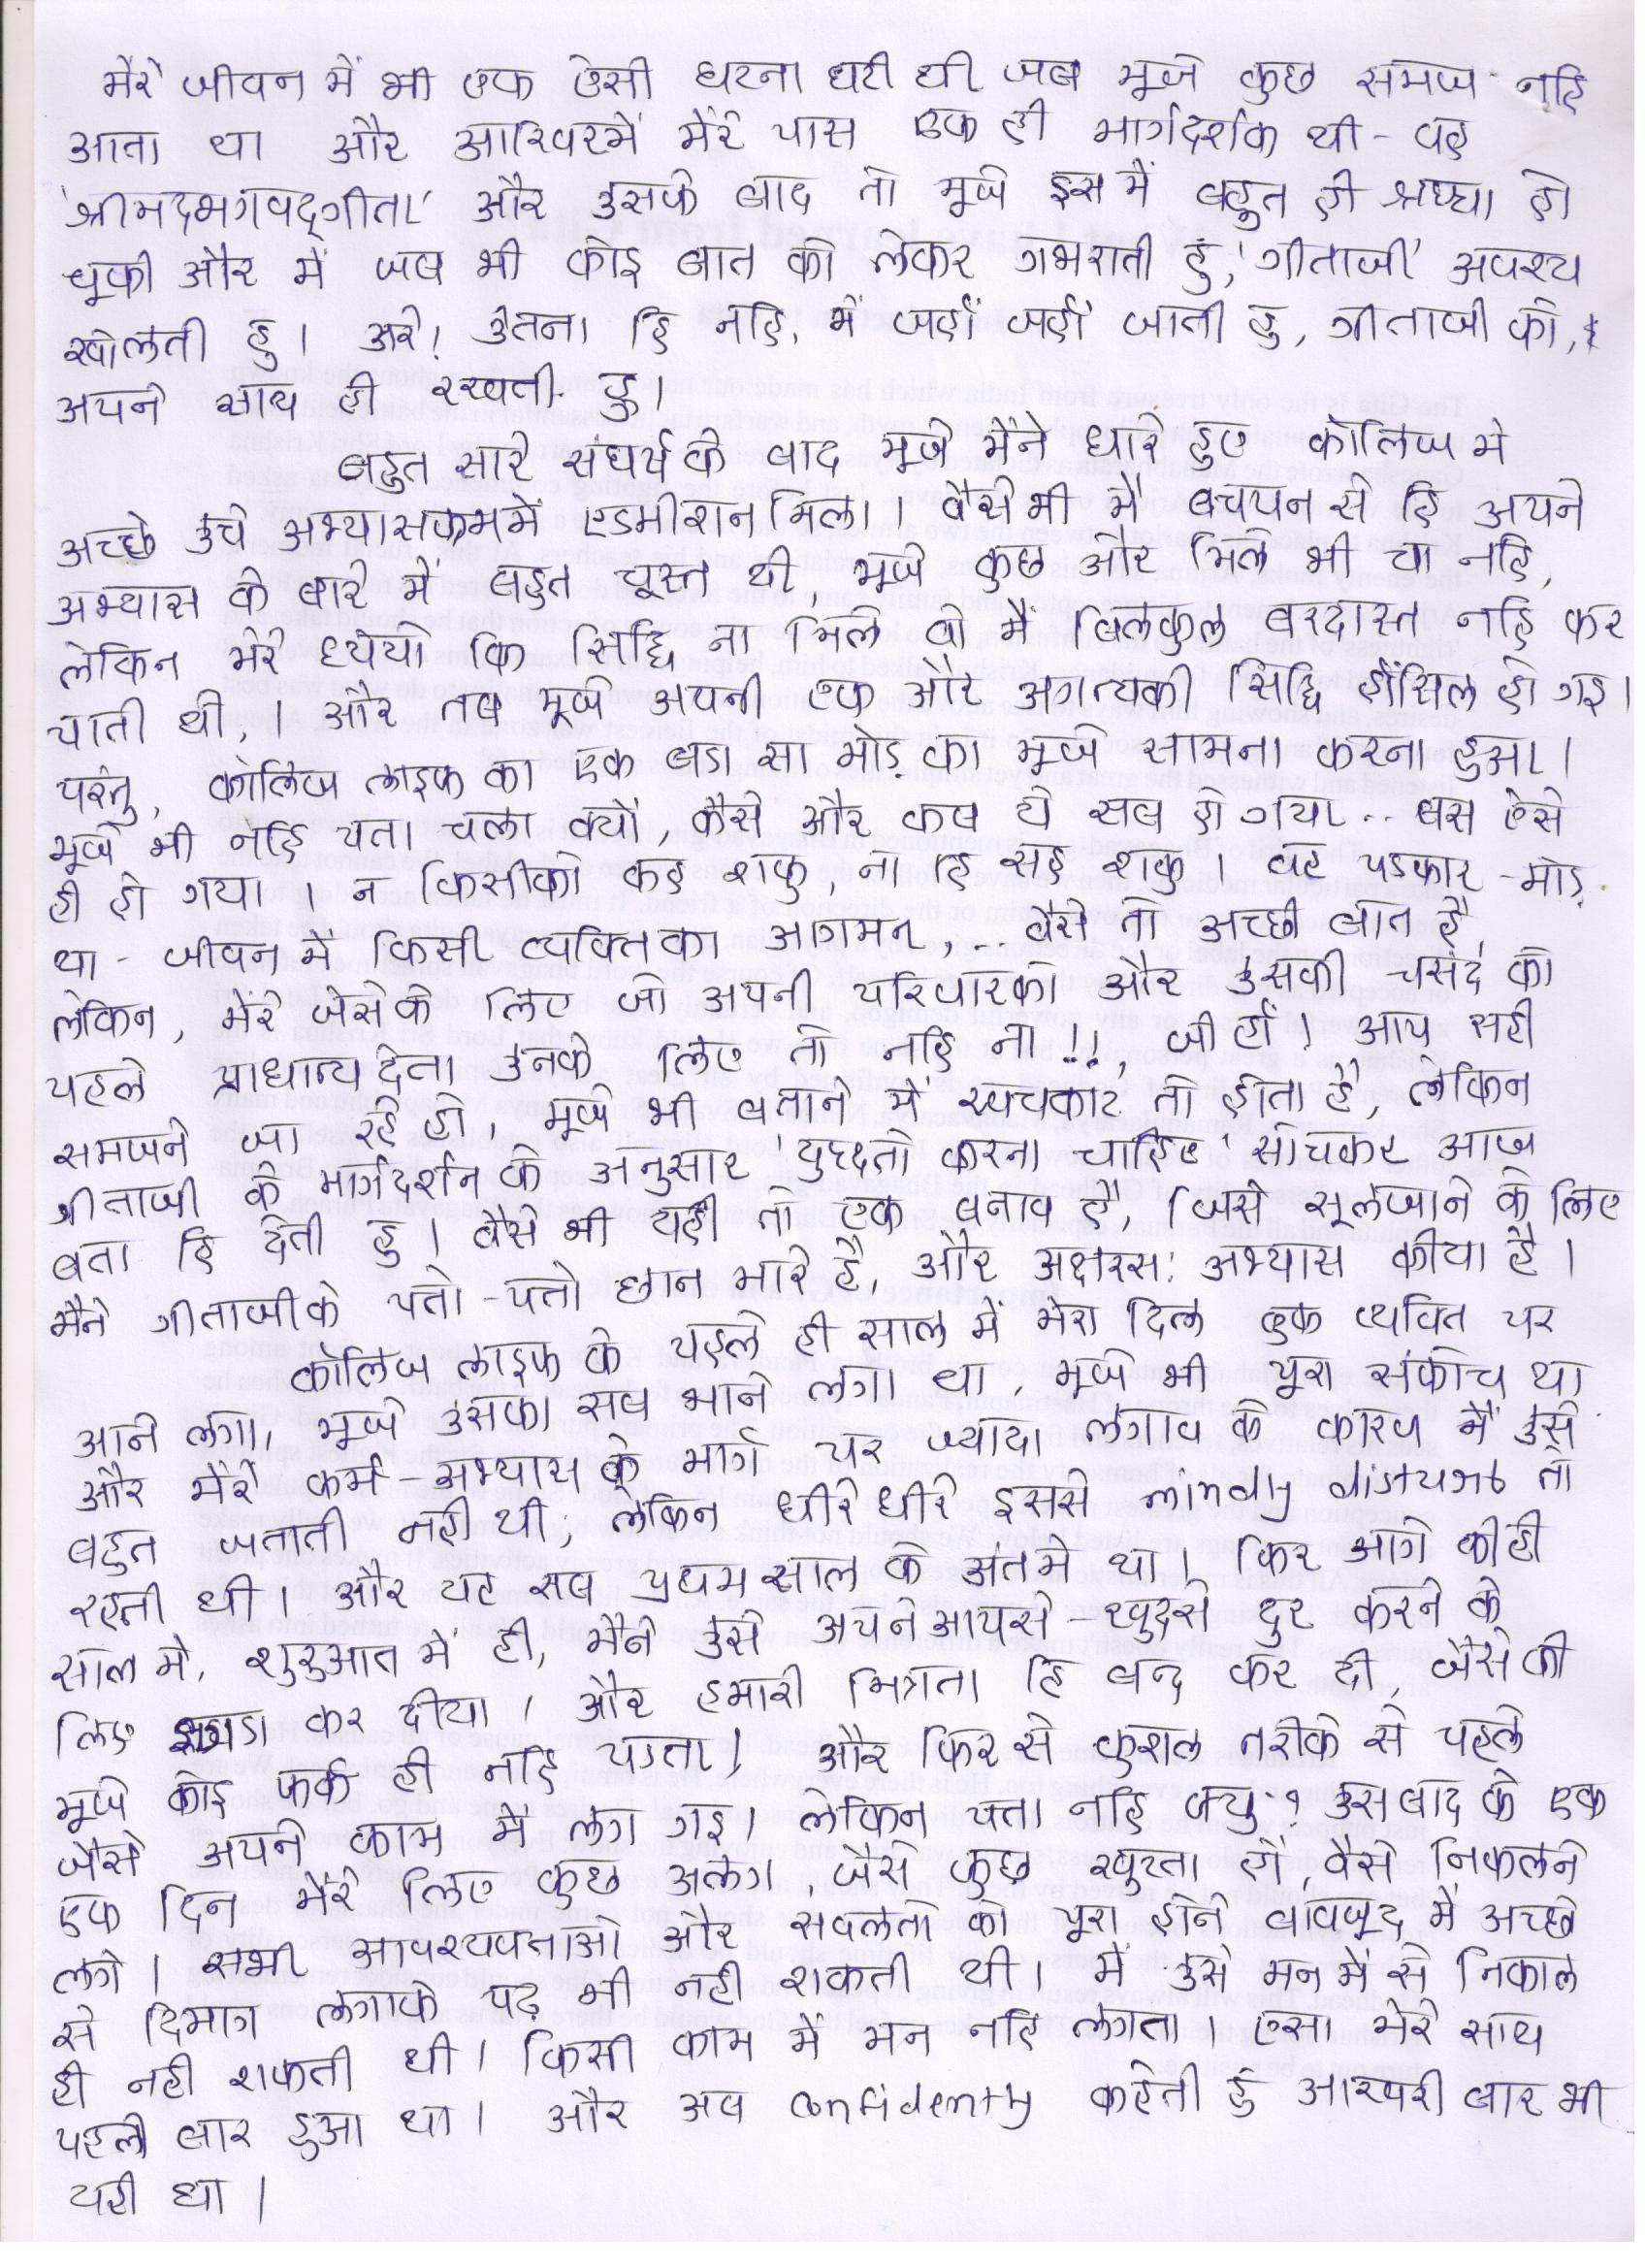 मेरे जीवन में भी एक ऐसी घटना घटी थी जब मूजे कुछ समज नहि
आता था और आखिरमें मेरे पास एक ही मार्गदर्शक थी - वह
'श्रीमदभगवद्गीता' और उसके बाद तो मूजे इस मैं बहुत ही श्रध्धा हो
चूकी और में जब भी कोइ बात को लेकर गभराती हुं, 'गीताजी' अवश्य
खोलती हु । अरे! उतना हि नहि, में जहाँ जहाँ जाती हु, गीताजी को,
अपने साथ ही रखती हु।
बहुत सारे संघर्ष के बाद मूजे मैंने धारे हुए कोलिज में
अच्छे उंचे अभ्यासक्रममें एडमीशन मिला। वैसे भी मैं बचपन से हि अपने
अभ्यास के बारे में बहुत चूस्त थी मूजे कुछ और मिले भी या नहि,
लेकिन मेरे ध्येयो कि सिद्धि ना मिले वो मैं बिलकुल बरदास्त नहि कर
पाती थी, । और तब मूजे अपनी एक और अगत्यकी सिद्धि हाँसिल हो गइ।
परंतु, कोलिज लाइफ का एक बडा सा मोड का मूजे सामना करना हुआ।
मूजे भी नहि पता चला क्यों, कैसे और कब ये सब हो गया... बस ऐसे
ही हो गया। न किसीको कह शकु, ना हि सह शकु। वह पडकार - मोड
था - जीवन में किसी व्यक्ति का आगमन,... वैसे तो अच्छी बात है
लेकिन, मेरे जेसेके लिए जो अपनी परिवारको और उसकी पसंद को
पहले प्राधान्य देता उनके लिए तो नहि ना!!, जी हाँ! आप सही
समजने जा रहे हो, मूजे भी बताने में खचकाट तो होता है, लेकिन
गीताजी के मार्गदर्शन के अनुसार 'युध्धतो करना चाहिए' सोचकर आज
बता हि देती हु । वैसे भी यही तो एक बनाव है, जिसे सूलजाने के लिए
मैंने गीताजीके पत्तो-पत्तो छान मारे है, और अक्षरस: अभ्यास कीया है ।
कोलिज लाइफ के पहले ही साल में मेरा दिल एक व्यक्ति पर
आने लगा, मूजे उसका सब भाने लगा था, मूजे भी पूरा संकोच था
और मेरे कर्म - अभ्यास के मार्ग पर ज्यादा लगाव के कारण मैं उसे
बहुत जताती नही थी, लेकिन धीरे धीरे इससे तो
रहती थी। और यह सब प्रथम साल के अंत में था। फिर आगे की ही
साल में, शुरुआत में ही, मैंने उसे अपने आपसे - खुदसे दुर करने के
लिए झगडा कर दीया । और हमारी मित्रता हि बन्द कर दी, जैसे की
मूजे कोइ फर्क ही नहि पडता! और फिर से कुशल तरीके से पहले
जैसे अपने काम में लग गइ। लेकिन पता नहि क्यु? उस बाद के एक
एक दिन मेरे लिए कुछ अलग, जैसे कुछ खूटता हो, वैसे निकलने
लगे। सभी आवश्यक्ताओ और सवलतो को पूरा होने बावजूद में अच्छे
से दिमाग लगाके पढ़ भी नही शकती थी। में उसे मन में से निकाल
ही नही शकती थी। किसी काम में मन नहि लगता। एसा मेरे साथ
पहली बार हुआ था। और अब confidently कहेती हुं आखरी बार भी
यही था ।